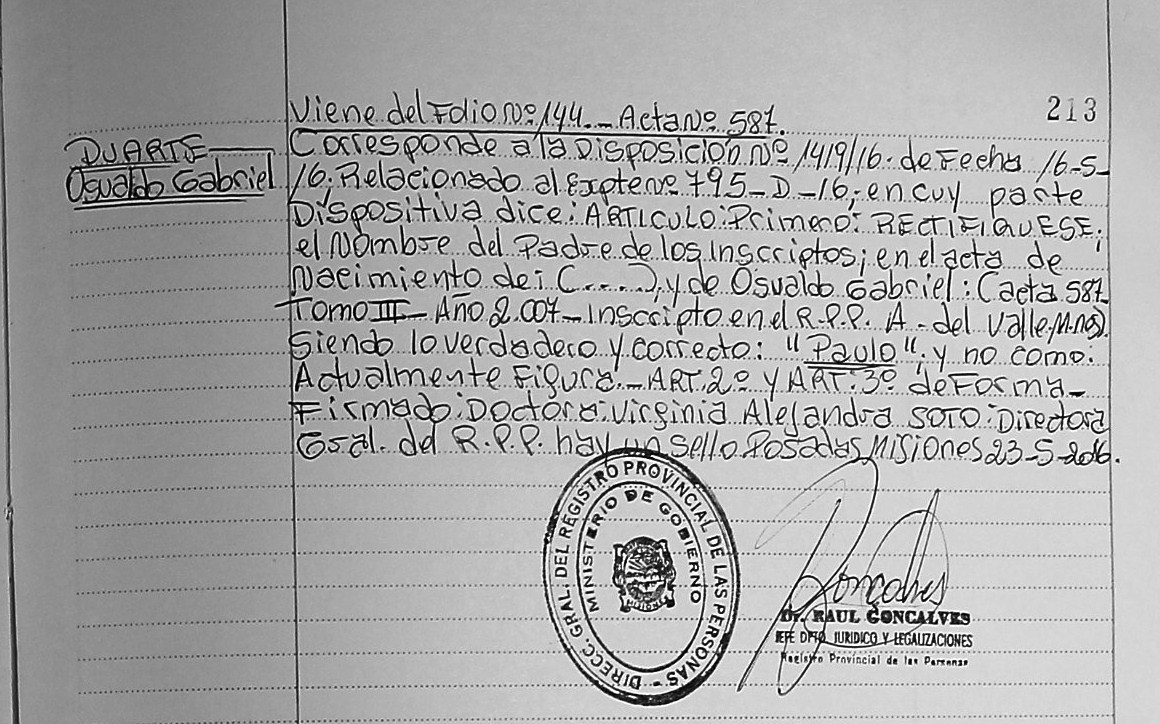 213
Viene del Folio Nº 144.- Acta Nº 587.
DUARTE
Osvaldo Gabriel
Corresponde a la Disposición Nº 1419/16. de Fecha 16-5-
16. Relacionado al Expte Nº 795-D-16; en cuy parte
Dispositiva dice: ARTICULO: Primero: RECTIFIQUESE;
el Nombre del Padre de los Inscriptos; en el acta de
Nacimiento de: C.....), y de Osvaldo Gabriel: (acta 587
Tomo III- Año 2.007- Inscripto en el R.P.P. A. del Valle, Mnes).
Siendo lo verdadero y correcto: "Paulo"; y no como.
Actualmente Figura.- ART. 2º y ART: 3º de Forma-
Firmado: Doctora: Virginia Alejandra SOTO: Directora
Gral. del R.P.P. hay un sello Posadas Misiones 23-5-2016.
DIRECC. GRAL. DEL REGISTRO PROVINCIAL DE LAS PERSONAS -
MINISTERIO DE GOBIERNO
MISIONES
Goncalves
Dr. RAUL GONCALVES
JEFE DPTO. JURIDICO Y LEGALIZACIONES
Registro Provincial de las Personas